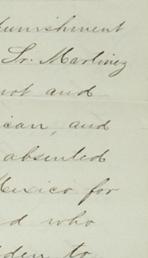 punishment
Sr. Martinez
not and
ican, and
absented
Mexico for
d who
den to